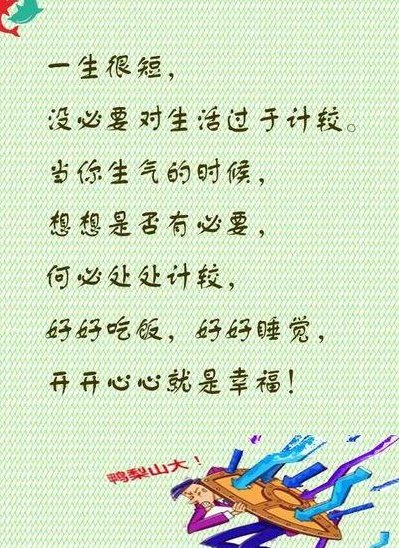 一生很短，
没必要对生活过于计较。
当你生气的时候，
想想是否有必要，
何必处处计较，
好好吃饭，好好睡觉，
开开心心就是幸福！
鸭梨山大！